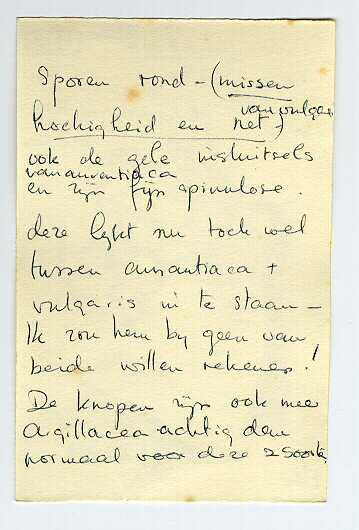 Sporen rond - (missen
van vulgaris
hoekigheid en net)
ook de gele insluitsels
van aurantiaca
en zijn fijn spinulose.
deze lijkt nu toch wel
tussen aurantiaca +
vulgaris in te staan -
Ik zou hem bij geen van
beide willen rekenen!
De knopen zijn ook meer
argillacea-achtig dan
normaal voor deze 2 soorten